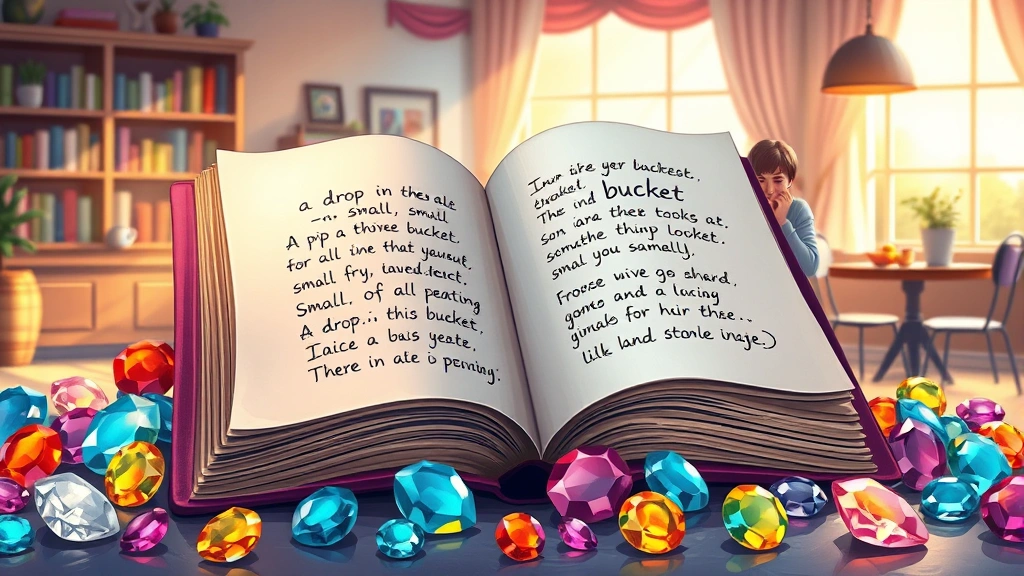 a drop in the ale
small, small
A pip a thive bucket.
for all ine that yausut.
small fry, laved.lect.
Small, of all peating
A drop... this bucket,
Iaice a bais yeate,
There in ate is
Inur tike yer backest,
The ind bucket
son iara thet tooks at.
the thinp locket.
smal you samelly.
Froese wive go shard,
and a luciny
for huir thre...
lilk land stonle inaje.)